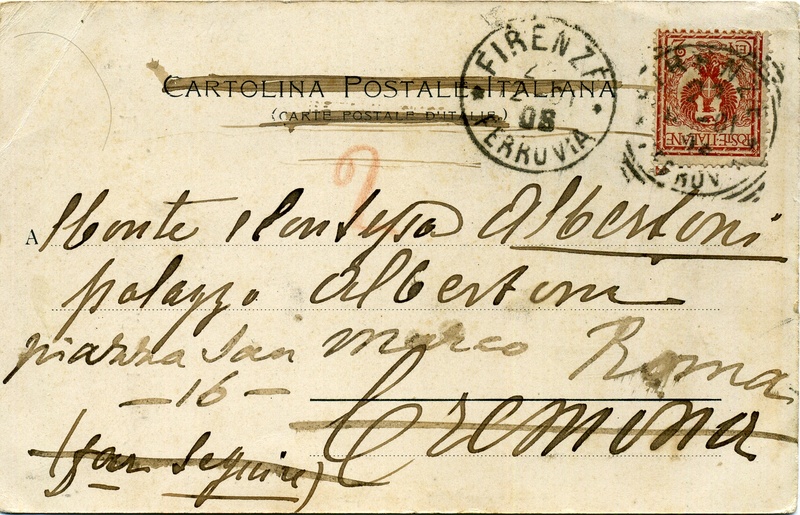 CARTOLINA POSTALE ITALIANA
(CARTE POSTALE D'ITALIE)
FIRENZE
08
FERROVIA
2
POSTE·ITALIANE
2
A Conte e Contessa Albertoni
palazzo Albertoni
piazza San Marco Roma
-16-
Cremona
(far seguire)